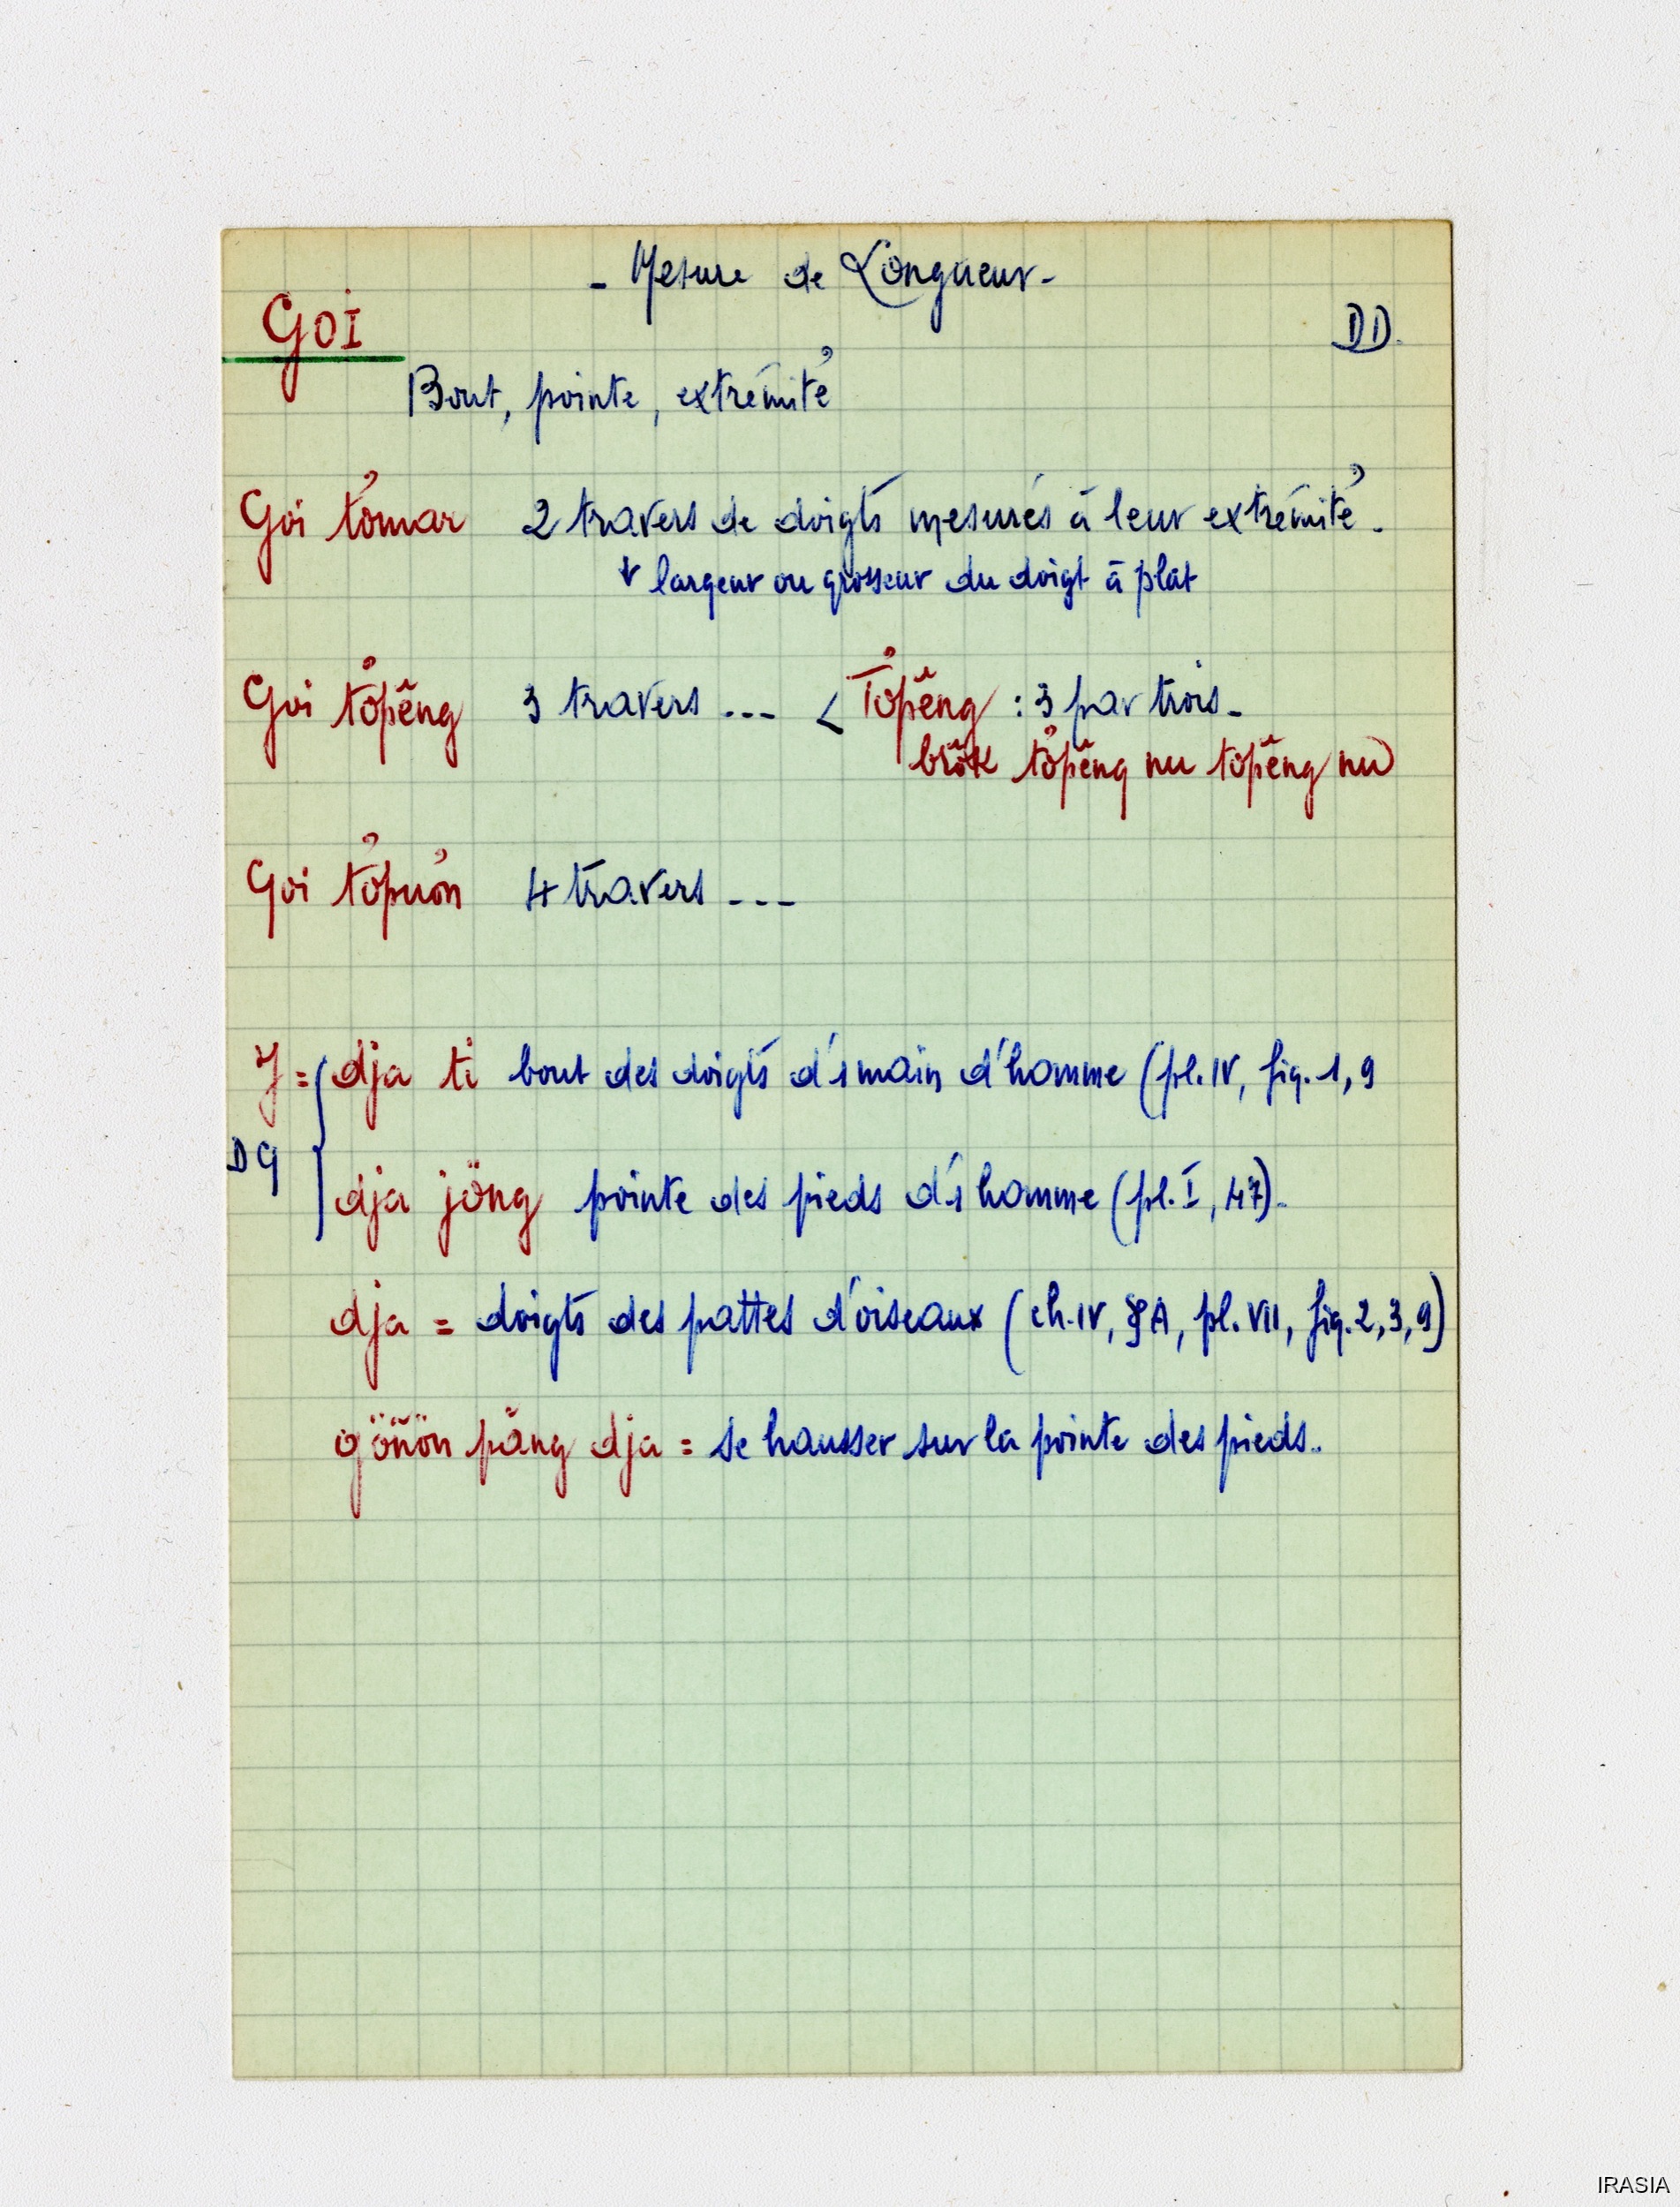 - Mesure de Longueur -
GOI
DD.
Bout, pointe, extrémité
Goi tơmar 2 travers de doigts mesurés à leur extrémité -
↓ largeur ou grosseur du doigt à plat
Goi tơpêng 3 travers --- < Tơpêng : 3 par trois -
brŏk tơpêng nu tơpêng nu
Goi tơpuơn 4 travers ---
J = dja ti bout des doigts d'1 main d'homme (pl. IV, fig. 1, 9
DG
dja jŏng pointe des pieds d'1 homme (pl. I, 47).
dja = doigts des pattes d'oiseaux (ch. IV, § A, pl. VII, fig. 2, 3, 9)
păng dja = se hausser sur la pointe des pieds.
IRASIA